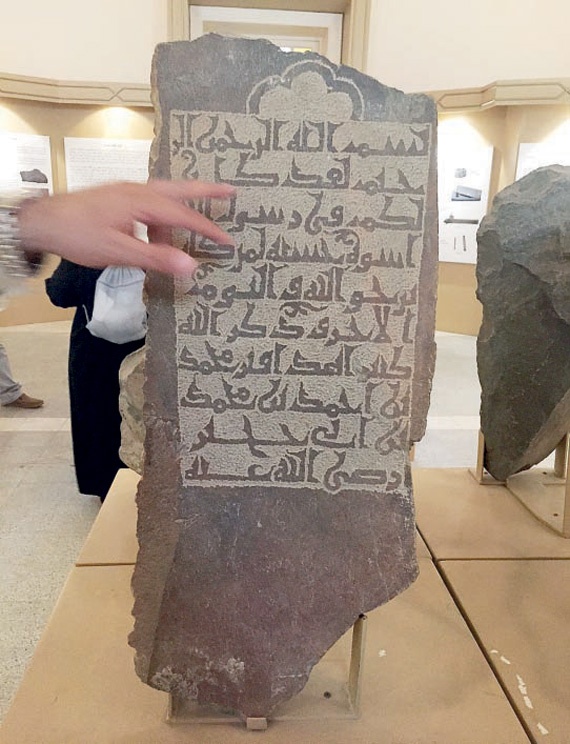 بسم الله الرحمن الر
حيم لقد كان
لكم في رسول
اسوة حسنة لمن كا
يرجو الله واليوم
الاخر وذكر الله
كثيرا هذا قبر محمد
بن احمد بن محمد
بن ابي
رضي الله عنه